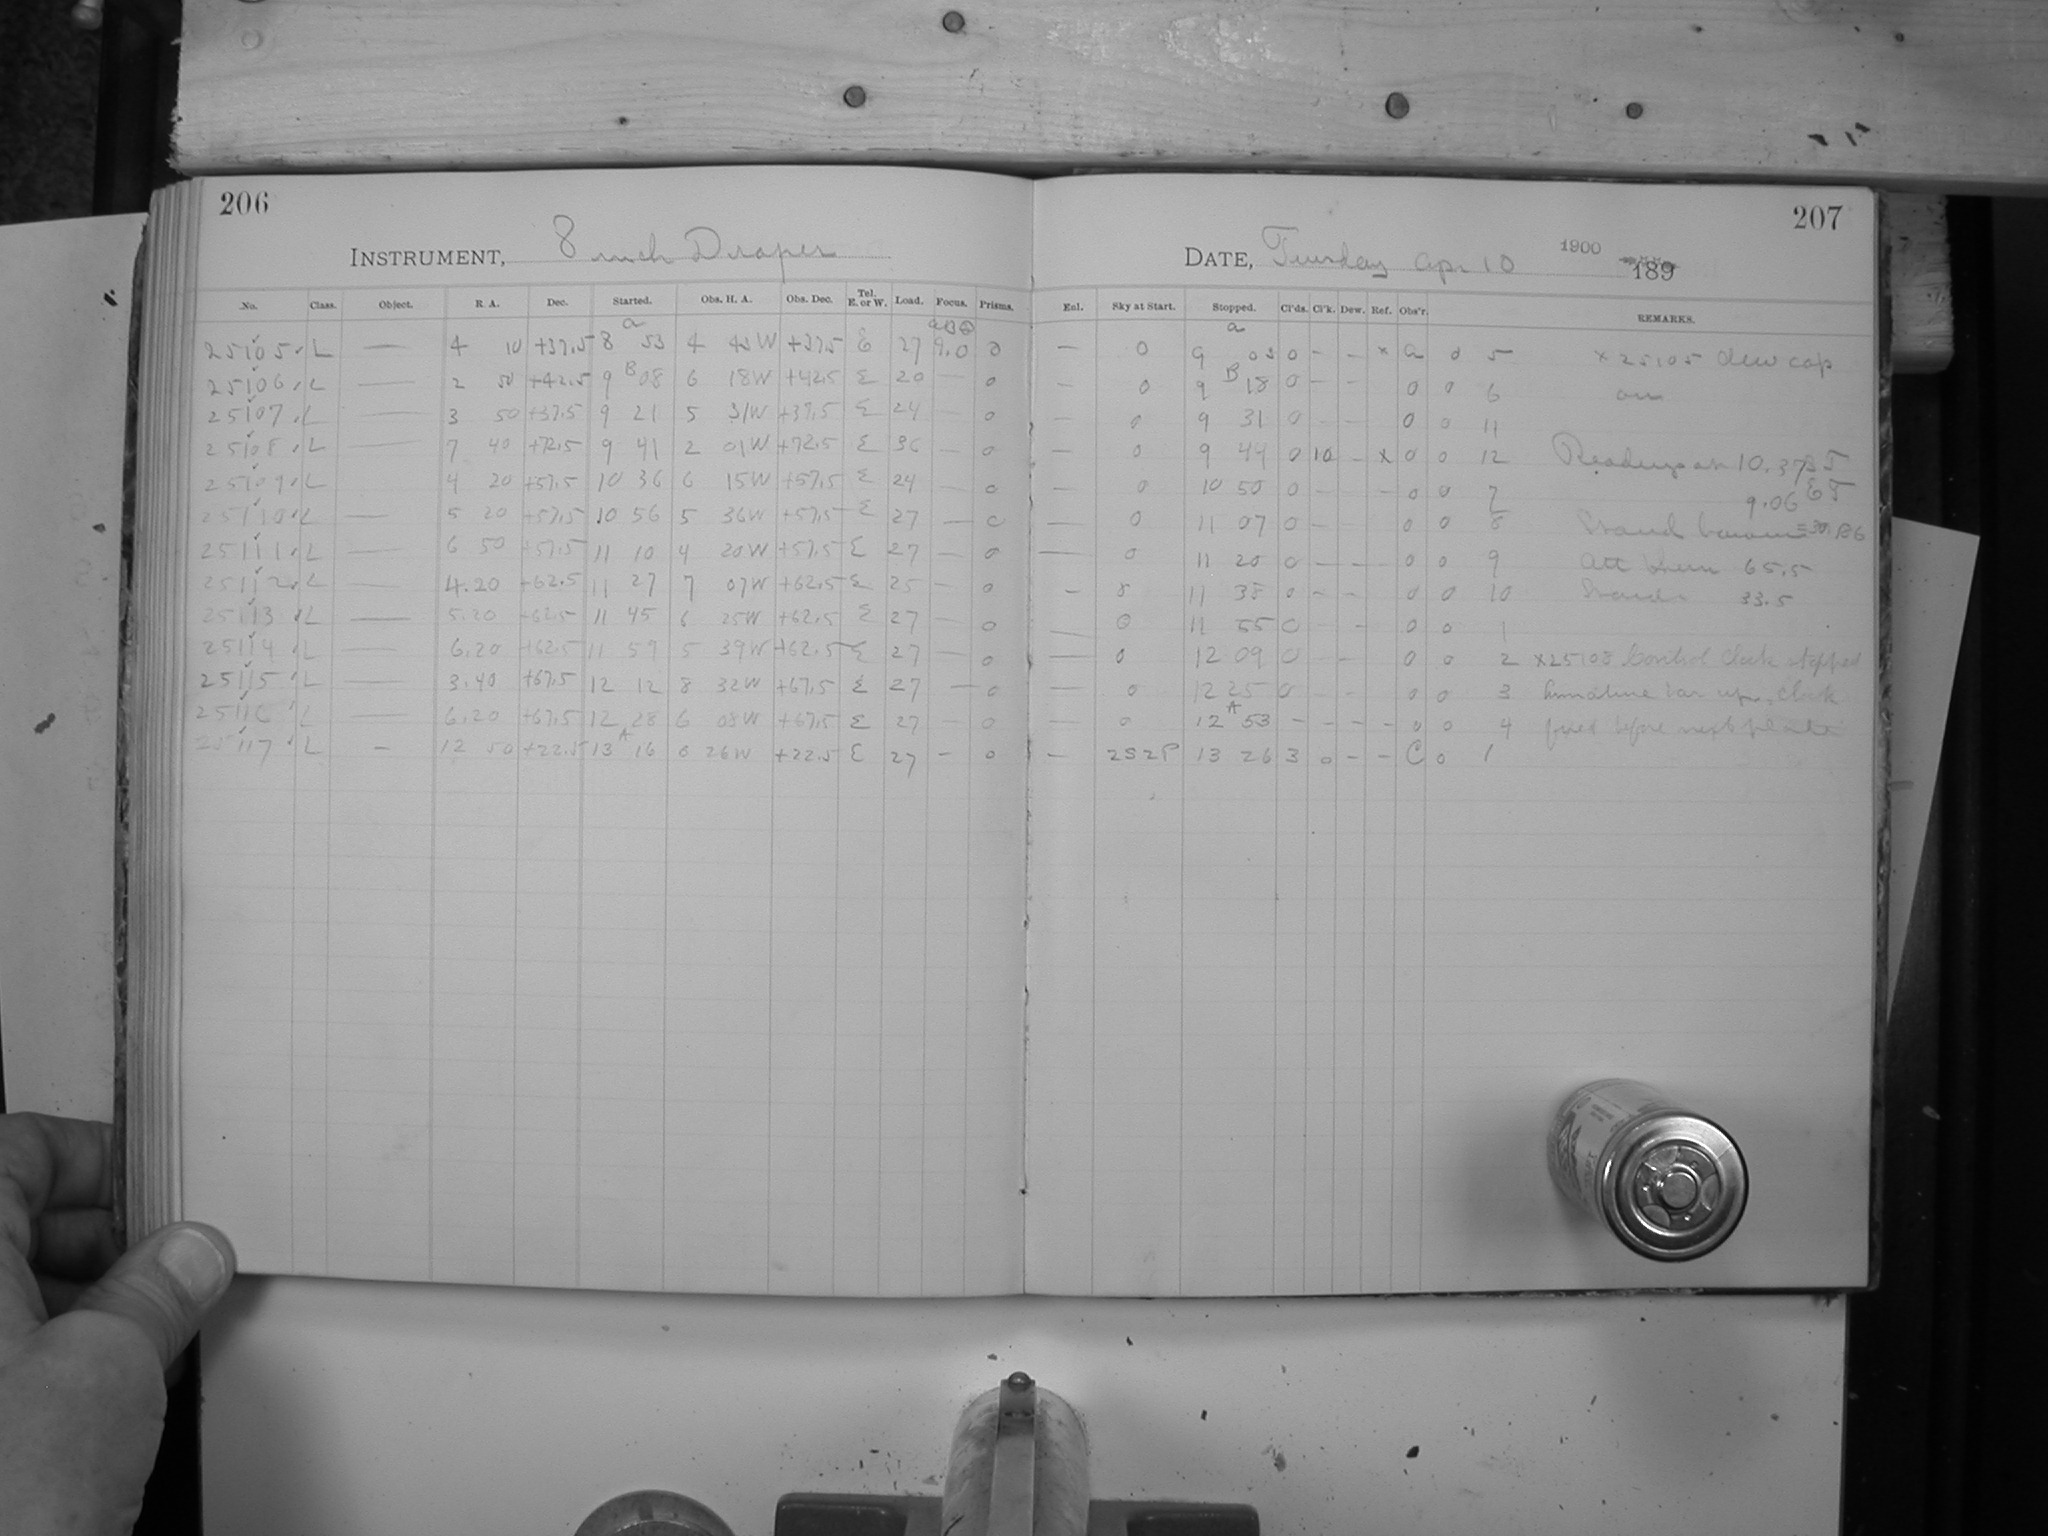 206
INSTRUMENT, 8 inch Draper
No. Class. Object. R. A. Dec. Started. Obs. H. A. Obs. Dec. Tel. E. or W. Load. Focus. Prisms.
25105 L — 4 10 +37.5 8 a 53 4 43W +37.5 E 27 9.0 0
25106 L — 2 50 +42.5 9 B 08 6 18W +42.5 E 20 — 0
25107 L — 3 50 +37.5 9 21 5 31W +37.5 E 24 — 0
25108 L — 7 40 +72.5 9 41 2 01W +72.5 E 36 — 0
25109 L — 4 20 +57.5 10 36 6 15W +57.5 E 24 — 0
25110 L — 5 20 +57.5 10 56 5 36W +57.5 E 27 — 0
25111 L — 6 50 +57.5 11 10 4 20W +57.5 E 27 — 0
25112 L — 4.20 +62.5 11 27 7 07W +62.5 E 25 — 0
25113 L — 5.20 +62.5 11 45 6 25W +62.5 E 27 — 0
25114 L — 6.20 +62.5 11 59 5 39W +62.5 E 27 — 0
25115 L — 3.40 +67.5 12 12 8 32W +67.5 E 27 — 0
25116 L — 6.20 +67.5 12 28 6 08W +67.5 E 27 — 0
25117 L — 12 50 +22.5 13 A 16 0 26W +22.5 E 27 — 0
207
DATE, Tuesday Apr 10 1900 189
Enl. Sky at Start. Stopped. Cl'ds. Cl'k. Dew. Ref. Obs'r. REMARKS.
— 0 9 a 03 0 – – x a 0 5 x 25105 dew cap
– 0 9 B 18 0 – – 0 0 6 on
– 0 9 31 0 – – 0 0 11
– 0 9 44 0 10 – x 0 0 12 Readings at 10.37 S T
— 0 10 50 0 – – – 0 0 7 9.06 E T
— 0 11 07 0 – – 0 0 8 Stand barom = 30.
— 0 11 20 0 – – – 0 0 9 Att therm 65.5
– 0 11 38 0 – – 0 0 10 33.5
— 0 11 55 0 – – 0 0 1
— 0 12 09 0 – – 0 0 2 x25108 Control clock stopped
— 0 12 25 0 – – 0 0 3 clock
— 0 12 A 53 – – – – 0 0 4 fixed before next plate
— 2S2P 13 26 3 0 – – C 0 1